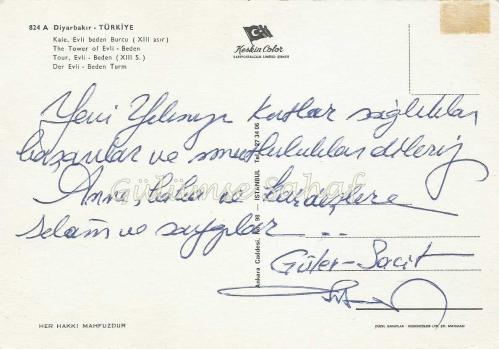 824 A Diyarbakır - TÜRKİYE
Kale, Evli beden Burcu ( XIII asır)
The Tower of Evli - Beden
Tour, Evli - Beden ( XIII S. )
Der Evli - Beden Turm
Keskin Color
KARTPOSTALCILIK LİMİTED ŞİRKETİ
Yeni Yılınızı kutlar sağlıklar
başarılar ve mutluluklar dileriz
Anne, baba ve kardeşlere
selâm ve saygılar ...
Güler - Sacit
Gülümse Sahaf
Ankara Caddesi, No. 98 - İSTANBUL Tel: 27 34 06
HER HAKKI MAHFUZDUR